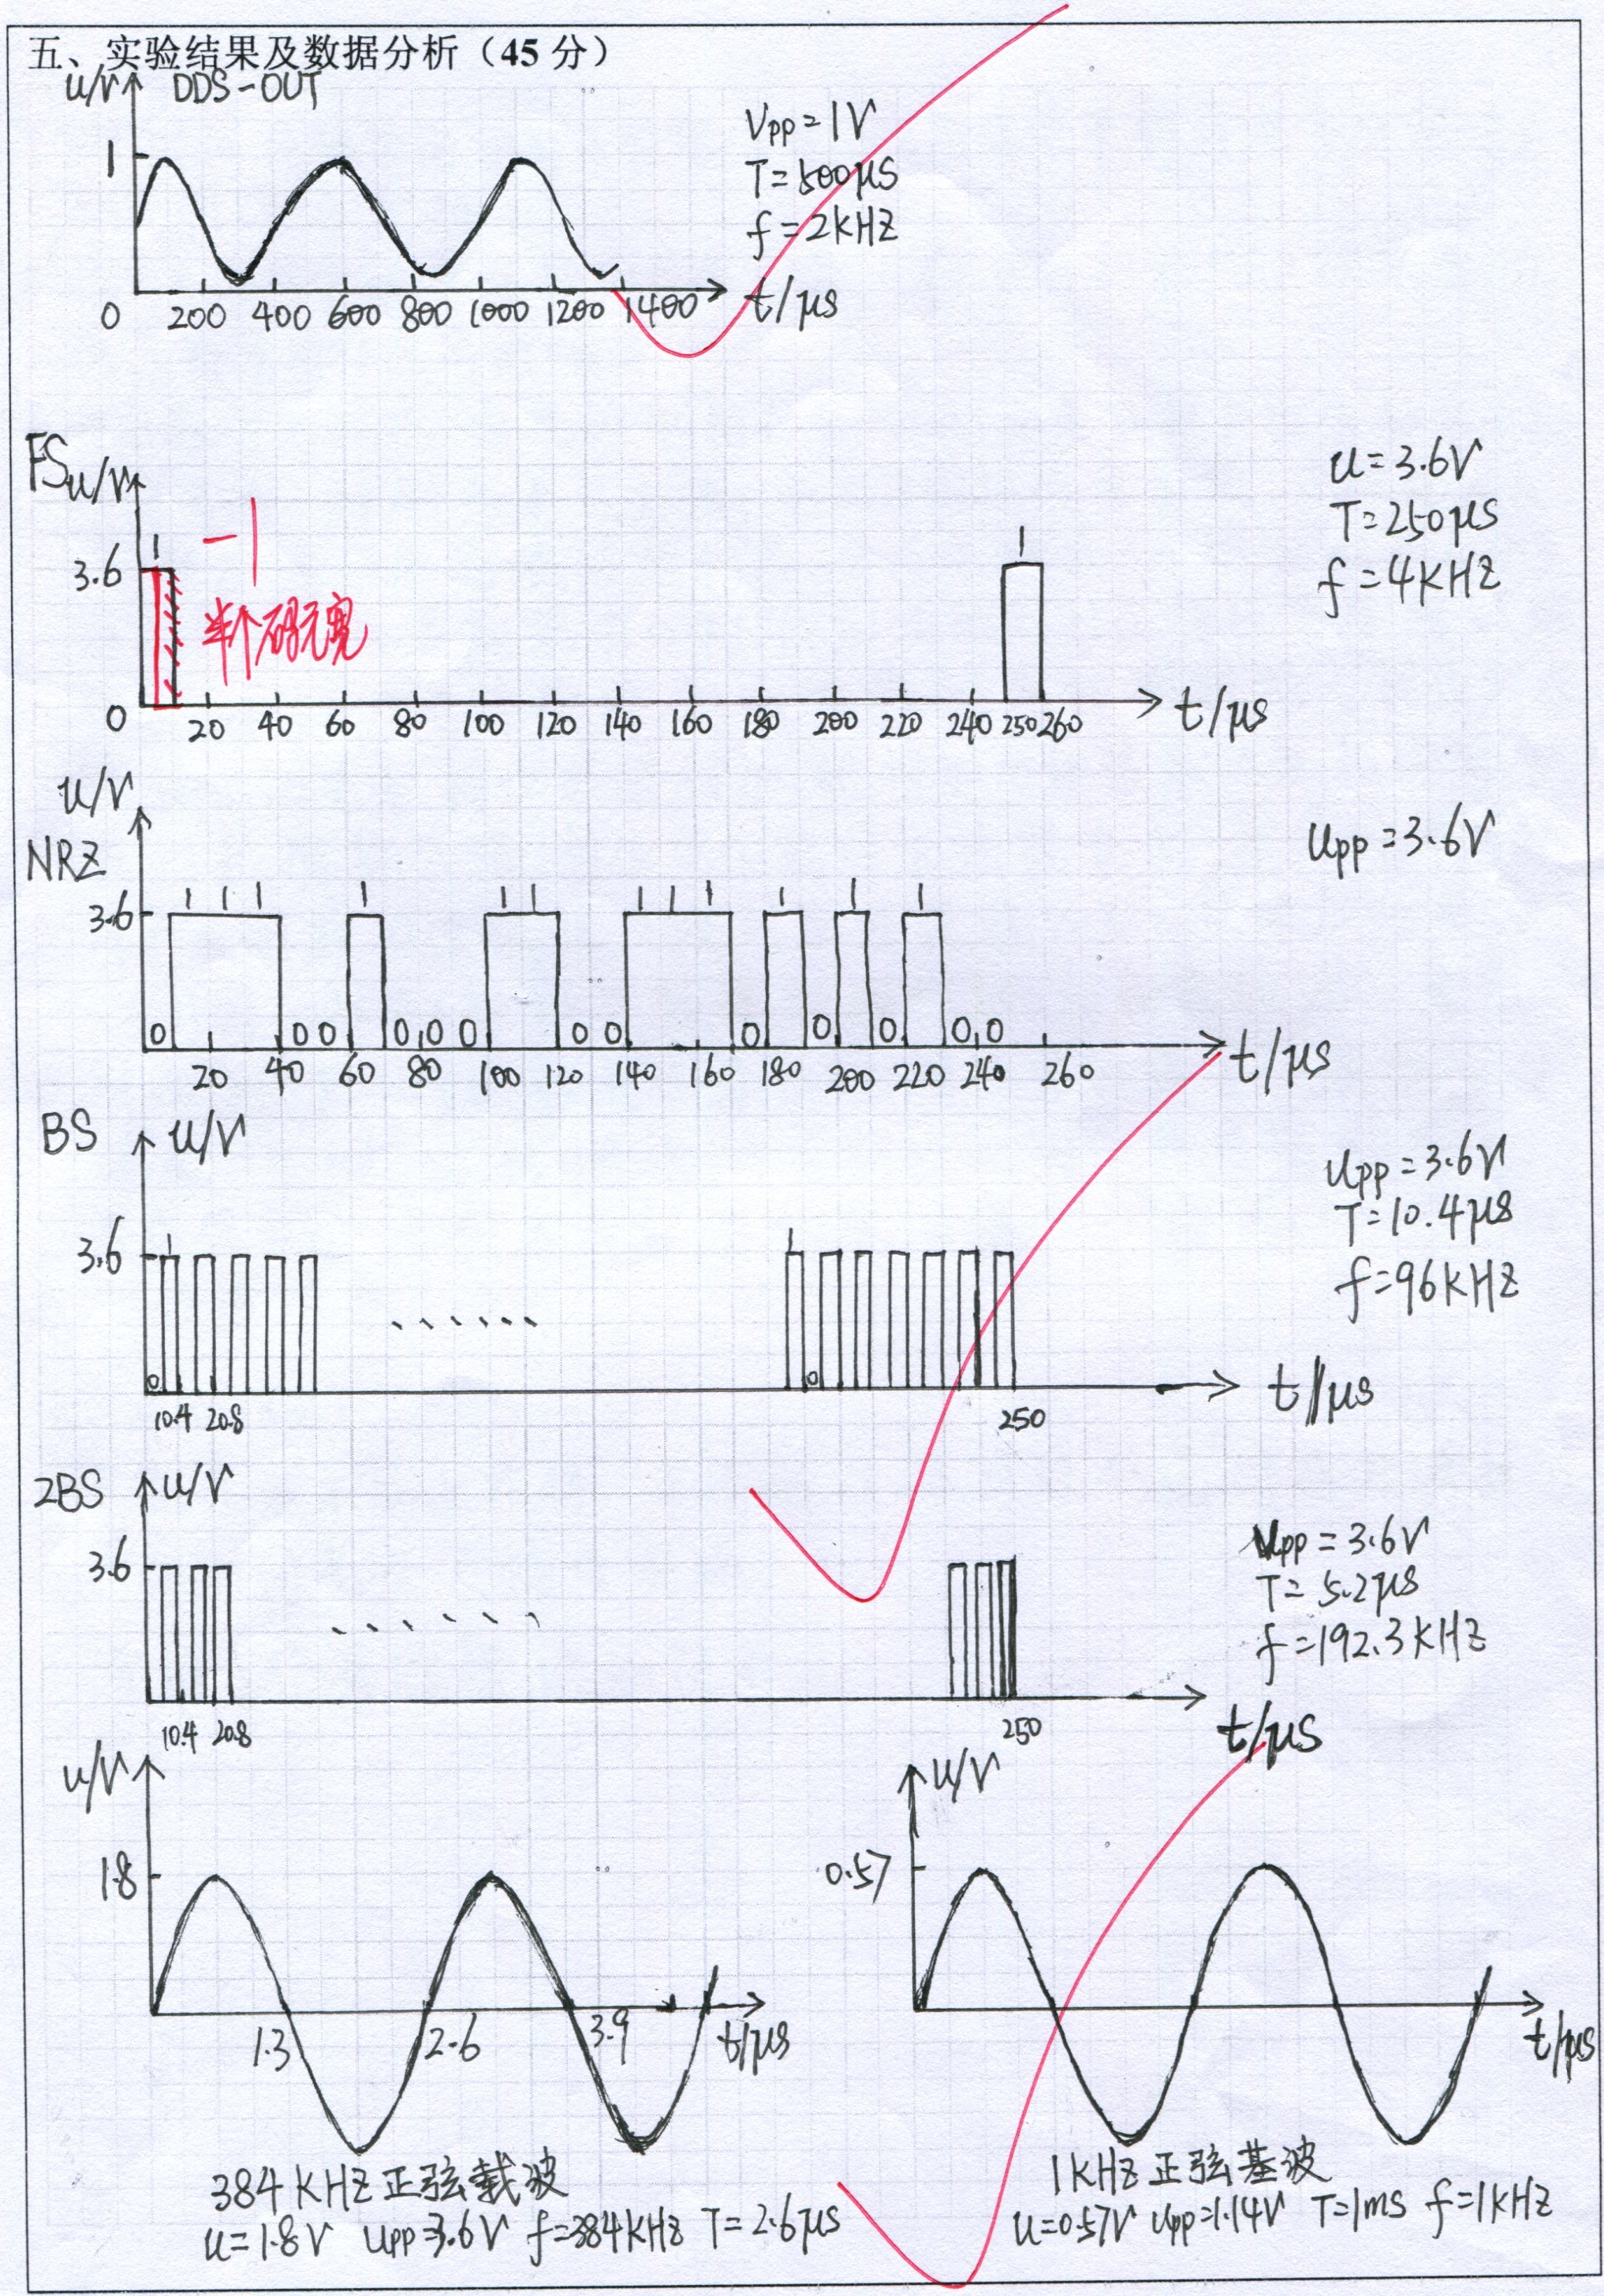 五、实验结果及数据分析（45 分）
u/V DDS-OUT
Vpp=1V
1
T=500μs
f=2kHz
0 200 400 600 800 1000 1200 1400 t/μs
FS u/V
u=3.6V
1 -1 1
T=250μs
3.6
f=4KHz
半个码元宽
0 20 40 60 80 100 120 140 160 180 200 220 240 250 260 t/μs
u/V
NRZ
Upp=3.6V
1 1 1 1 1 1 1 1 1 1 1 1
3.6
0 0 0 0 0 0 0 0 0 0 0 0 0
20 40 60 80 100 120 140 160 180 200 220 240 260 t/μs
BS u/V
Upp=3.6V
T=10.4μs
3.6 1 1
f=96KHz
......
0 0
10.4 20.8 250 t/μs
2BS u/V
Upp=3.6V
3.6
T=5.2μs
......
f=192.3KHz
10.4 20.8 250 t/μs
u/V
1.8
1.3 2.6 3.9 t/μs
384KHz正弦载波
u=1.8V Upp=3.6V f=384KHz T=2.6μs
u/V
0.57
t/μs
1KHz正弦基波
u=0.57V Upp=1.14V T=1ms f=1KHz